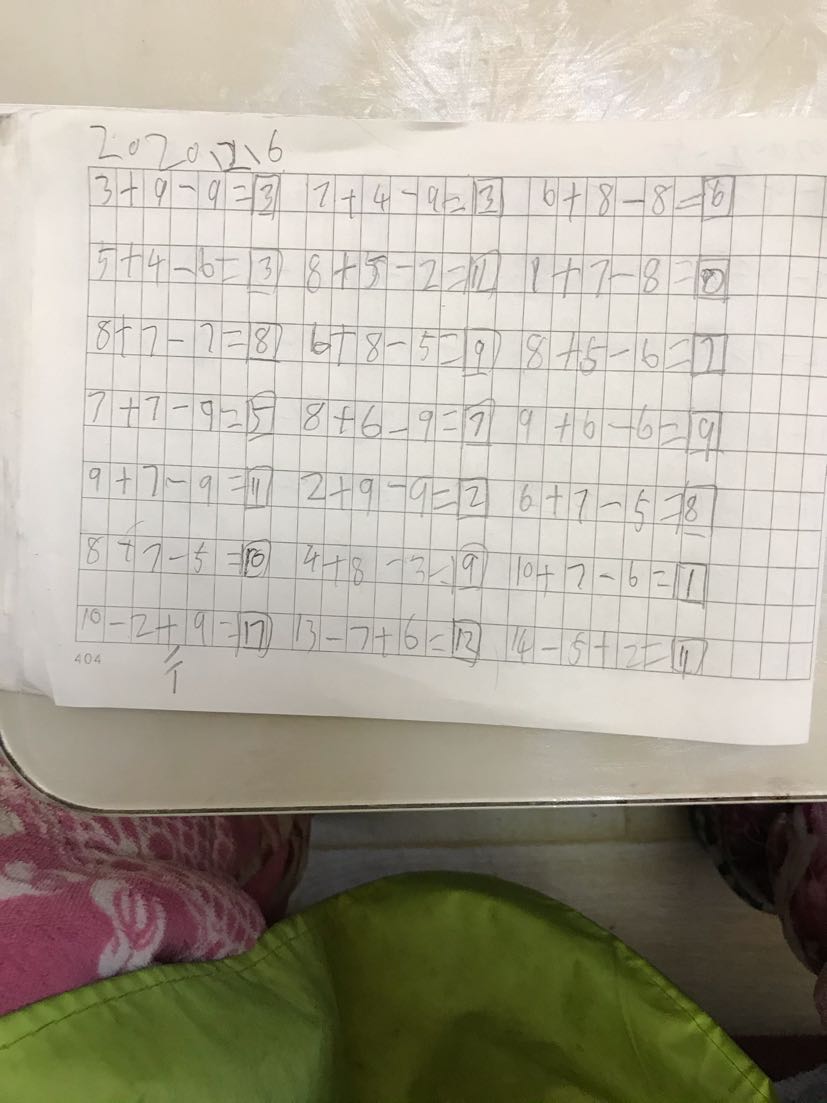 2020、1、6
3+9-9=3 7+4-9=3 6+8-8=6
5+4-6=3 8+5-2=11 1+7-8=0
8+7-7=8 6+8-5=9 8+5-6=7
7+7-9=5 8+6-9=7 9+6-6=9
9+7-9=11 2+9-9=2 6+7-5=8
8+7-5=10 4+8-3=9 10+7-6=1
10-2+9=17 13-7+6=12 14-5+2=11
404